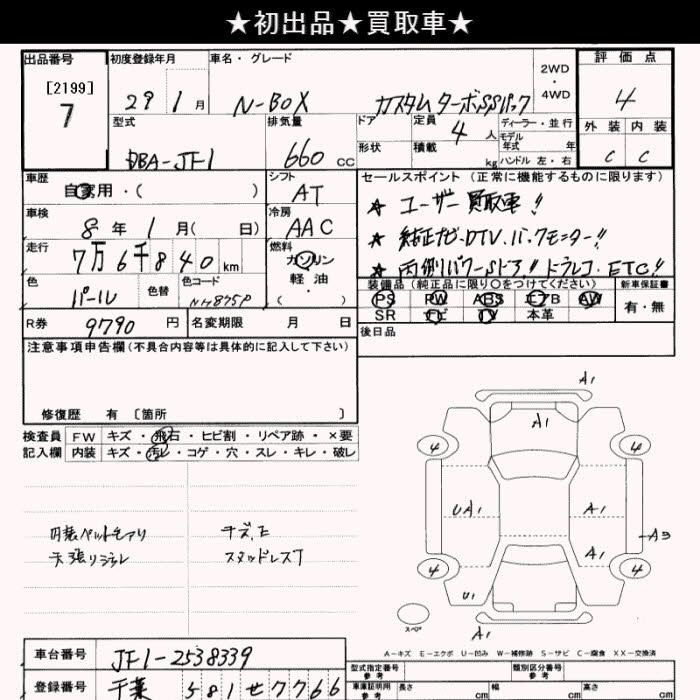 ★初出品★買取車★
出品番号 初度登録年月 車名・グレード 2WD・4WD 評価点
[2199] 7 29 1月 N-BOX カスタムターボSSパック 4
型式 排気量 ドア 定員 4人 ディーラー・並行 外装 内装
DBA-JF1 660cc 形状 積載 kg モデル年式 年 ハンドル 左・右 C C
車歴 シフト セールスポイント(正常に機能するものに限ります)
自家用・( ) AT ★ユーザー買取車!!
車検 冷房 ★純正ナビ・DTV・バックモニター!!
8年1月( 日) AAC ★両側パワーSドア!!ドラレコ・ETC!!
走行 燃料
7万6千840km ガソリン・軽油・( )
色 色替 色コード 装備品(純正品に限り○をつけてください) 新車保証書
パール NH875P PS PW ABS エアB AW 有・無
SR ナビ TV 本革
R券 9790円 名変期限 月 日 後日品
注意事項申告欄(不具合内容等は具体的に記入して下さい)
修復歴 有〔箇所 〕
検査員 FW キズ・飛石・ヒビ割・リペア跡・×要
記入欄 内装 キズ・汚レ・コゲ・穴・スレ・キレ・破レ
内装ペットモアリ キズ、
天張リシミ スタッドレス
A1
A1
4 4
UA1 A1
A3
A1
4 4
U1
A1
スペア
A-キズ E-エクボ U-凹み W-補修跡 S-サビ C-腐食 XX-交換済
車台番号 JF1-2538339
型式指定番号 参考 類別区分番号 参考
登録番号 千葉 581 せ 7766
車庫証明用 参考 長さ cm 幅 cm 高さ cm